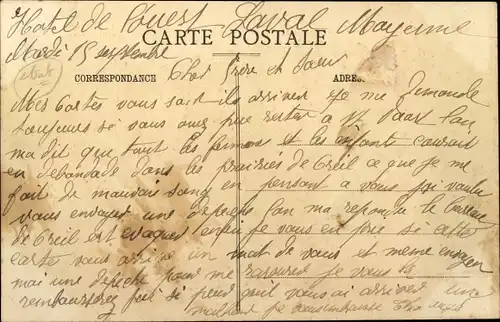 Hotel de l'Ouest Laval Mayenne
Mardi 15 septembre
CARTE POSTALE
CORRESPONDANCE
ADRES
Cher Frère et Soeur
Mes cartes vous sont ils arriver je me demande
toujours si vous avez pue rester a St on
ma dit que tout les femmes et les enfants courait
en debandade dans les prairies de Creil ce que je me
fait de mauvais sang en pensant a vous j'ai voulu
vous envoyer une depeche l'on ma repondue le bureau
de Creil est evaquer enfin je vous en prie si cette
carte vous arrive un mot de vous et meme envoyer
moi une depeche pour me rassurer je vous la
rembourserez si peur qu'il vous ai arriver une
malheur je vous embrasse